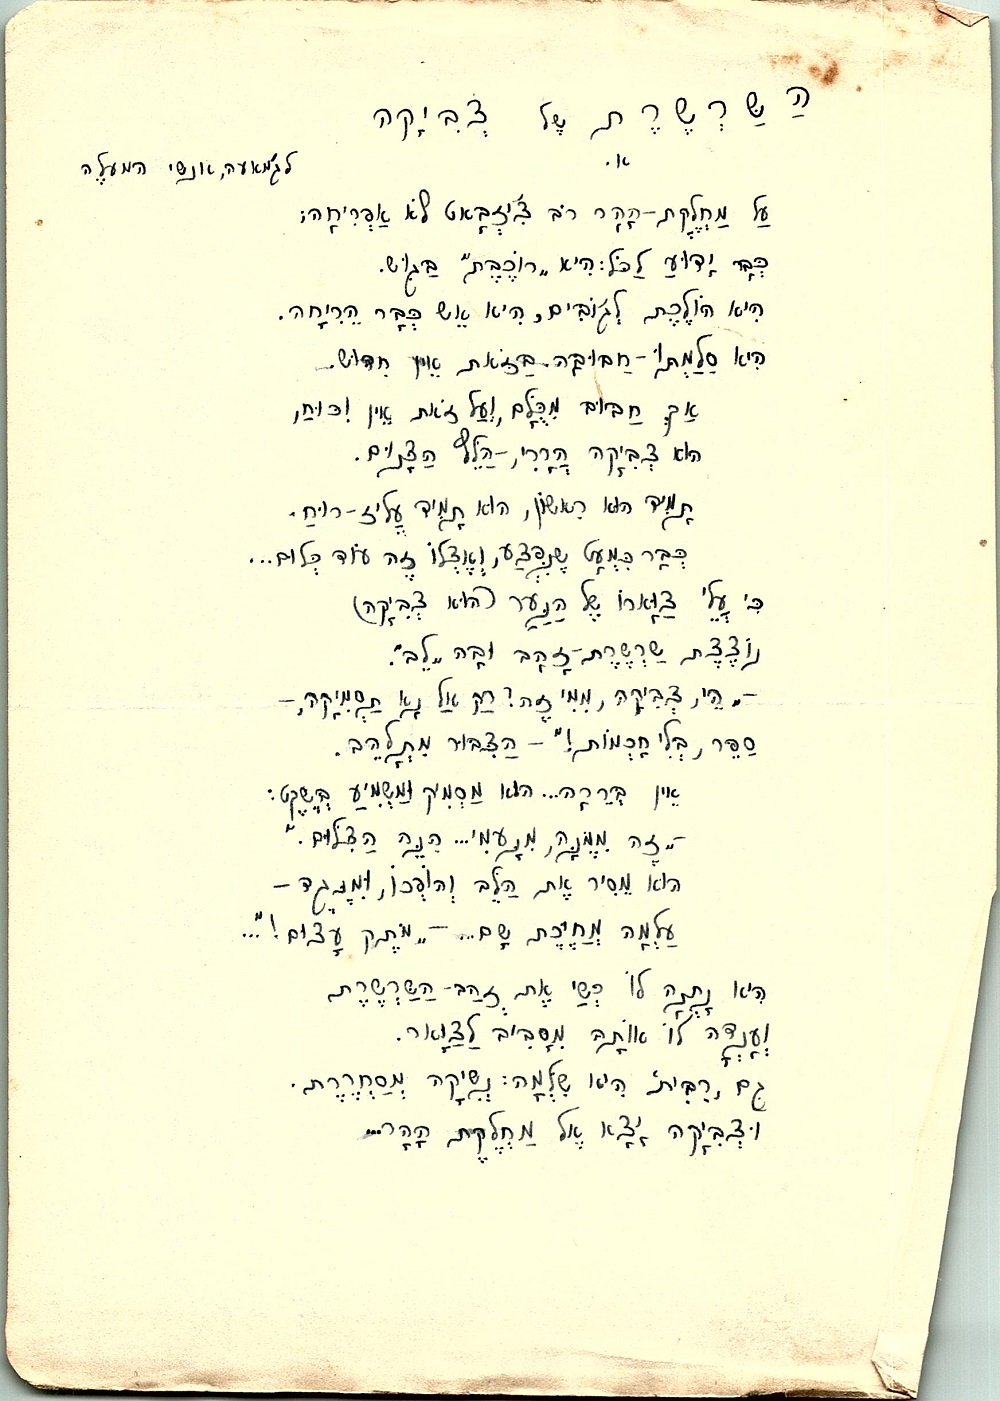 הַשַּׁרְשֶׁרֶת שֶׁל צְבִיקָה
לגמאעה, אנשי המעלה
א.
עַל מַחְלֶקֶת-הָהָר רֹב צִ'יזְבָּאט לֹא אַפְרִיחָה;
כְּבָר יָדוּעַ לַכֹּל: הִיא „רוֹכֶבֶת" בַּגּוּשׁ.
הִיא הוֹלֶכֶת לְגוֹבִים, הִיא אֵשׁ כְּבָר הֵרִיחָה.
הִיא סַלַמְתּוֹ-חֲבוּבָה בַּזֹּאת אֵין חִדּוּשׁ.
אַךְ חָבִיב מִכֻּלָּם, וְעַל זֹאת אֵין וִכּוּחַ,
הוּא צְבִיקָה הֲרָרִי, –הַלֵּץ הַצָּנוּם.
תָּמִיד הוּא רִאשׁוֹן, הוּא תָּמִיד עֲלִיז-רוּחַ.
כְּבָר כִּמְעַט שֶׁנִּפְצַע, וְאֶצְלוֹ זֶה עוֹד כְּלוּם...
כִּי עֲלֵי צַוָּארוֹ שֶׁל הַנַּעַר (הוּא צְבִיקָה)
נוֹצֶצֶת שַׁרְשֶׁרֶת-זָהָב וּבָהּ „לֵב".
–„הֵי, צְבִיקָה, מִמִּי זֶה? רַק אַל נָא תַּסְמִיקָה, –
סַפֵּר, בְּלִי חָכְמוֹת!" – הַצִּבּוּר מִתְלַהֵב.
אֵין בְּרֵרָה... הוּא מַסְמִיק וּמַשְׁמִיעַ בְּשֶׁקֶט:
–„זֶה מִמֶּנָּה, מִנָּעֳמִי... הִנֵּה הַצִּלּוּם."
הוּא מֵסִיר אֶת הַלֵּב וְהוֹפְכוֹ, וּמִנֶּגֶד –
עַלְמָה מְחַיֶּכֶת שָׁם... –„מֹתֶק עָצוּם!"...
הִיא נָתְנָה לוֹ כְּשַׁי אֶת זְהַב-הַשַּׁרְשֶׁרֶת
וְעָנְדָה לוֹ אוֹתָהּ מִסָּבִיב לַצַּוָּאר.
גַּם רִבִּית הִיא שִׁלְּמָה: נְשִׁיקָה מְסַחְרֶרֶת.
וּצְבִיקָה יָצָא אֶל מַחְלֶקֶת הָהָר...